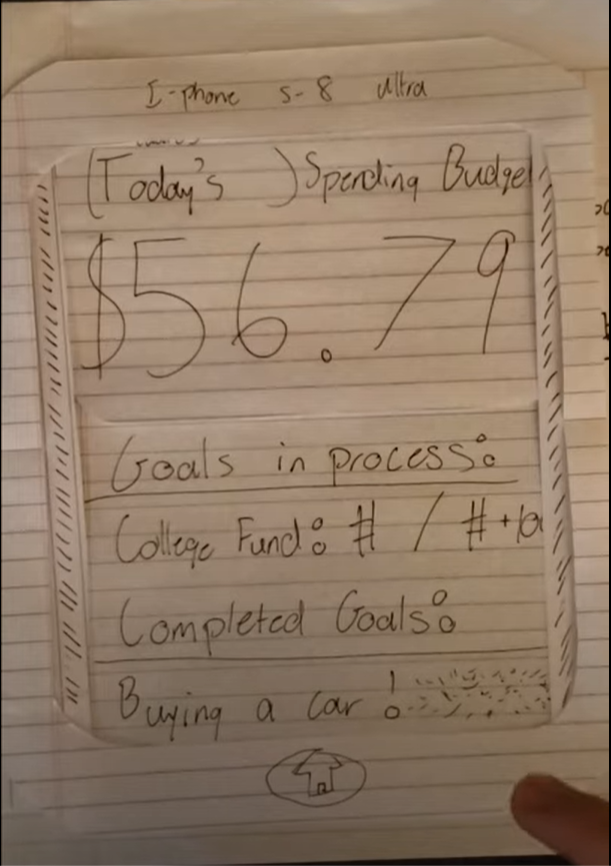 I-phone s-8 ultra
(Today's ) Spending Budget
$56.79
Goals in process:
College Fund: # / # +
Completed Goals:
Buying a car!